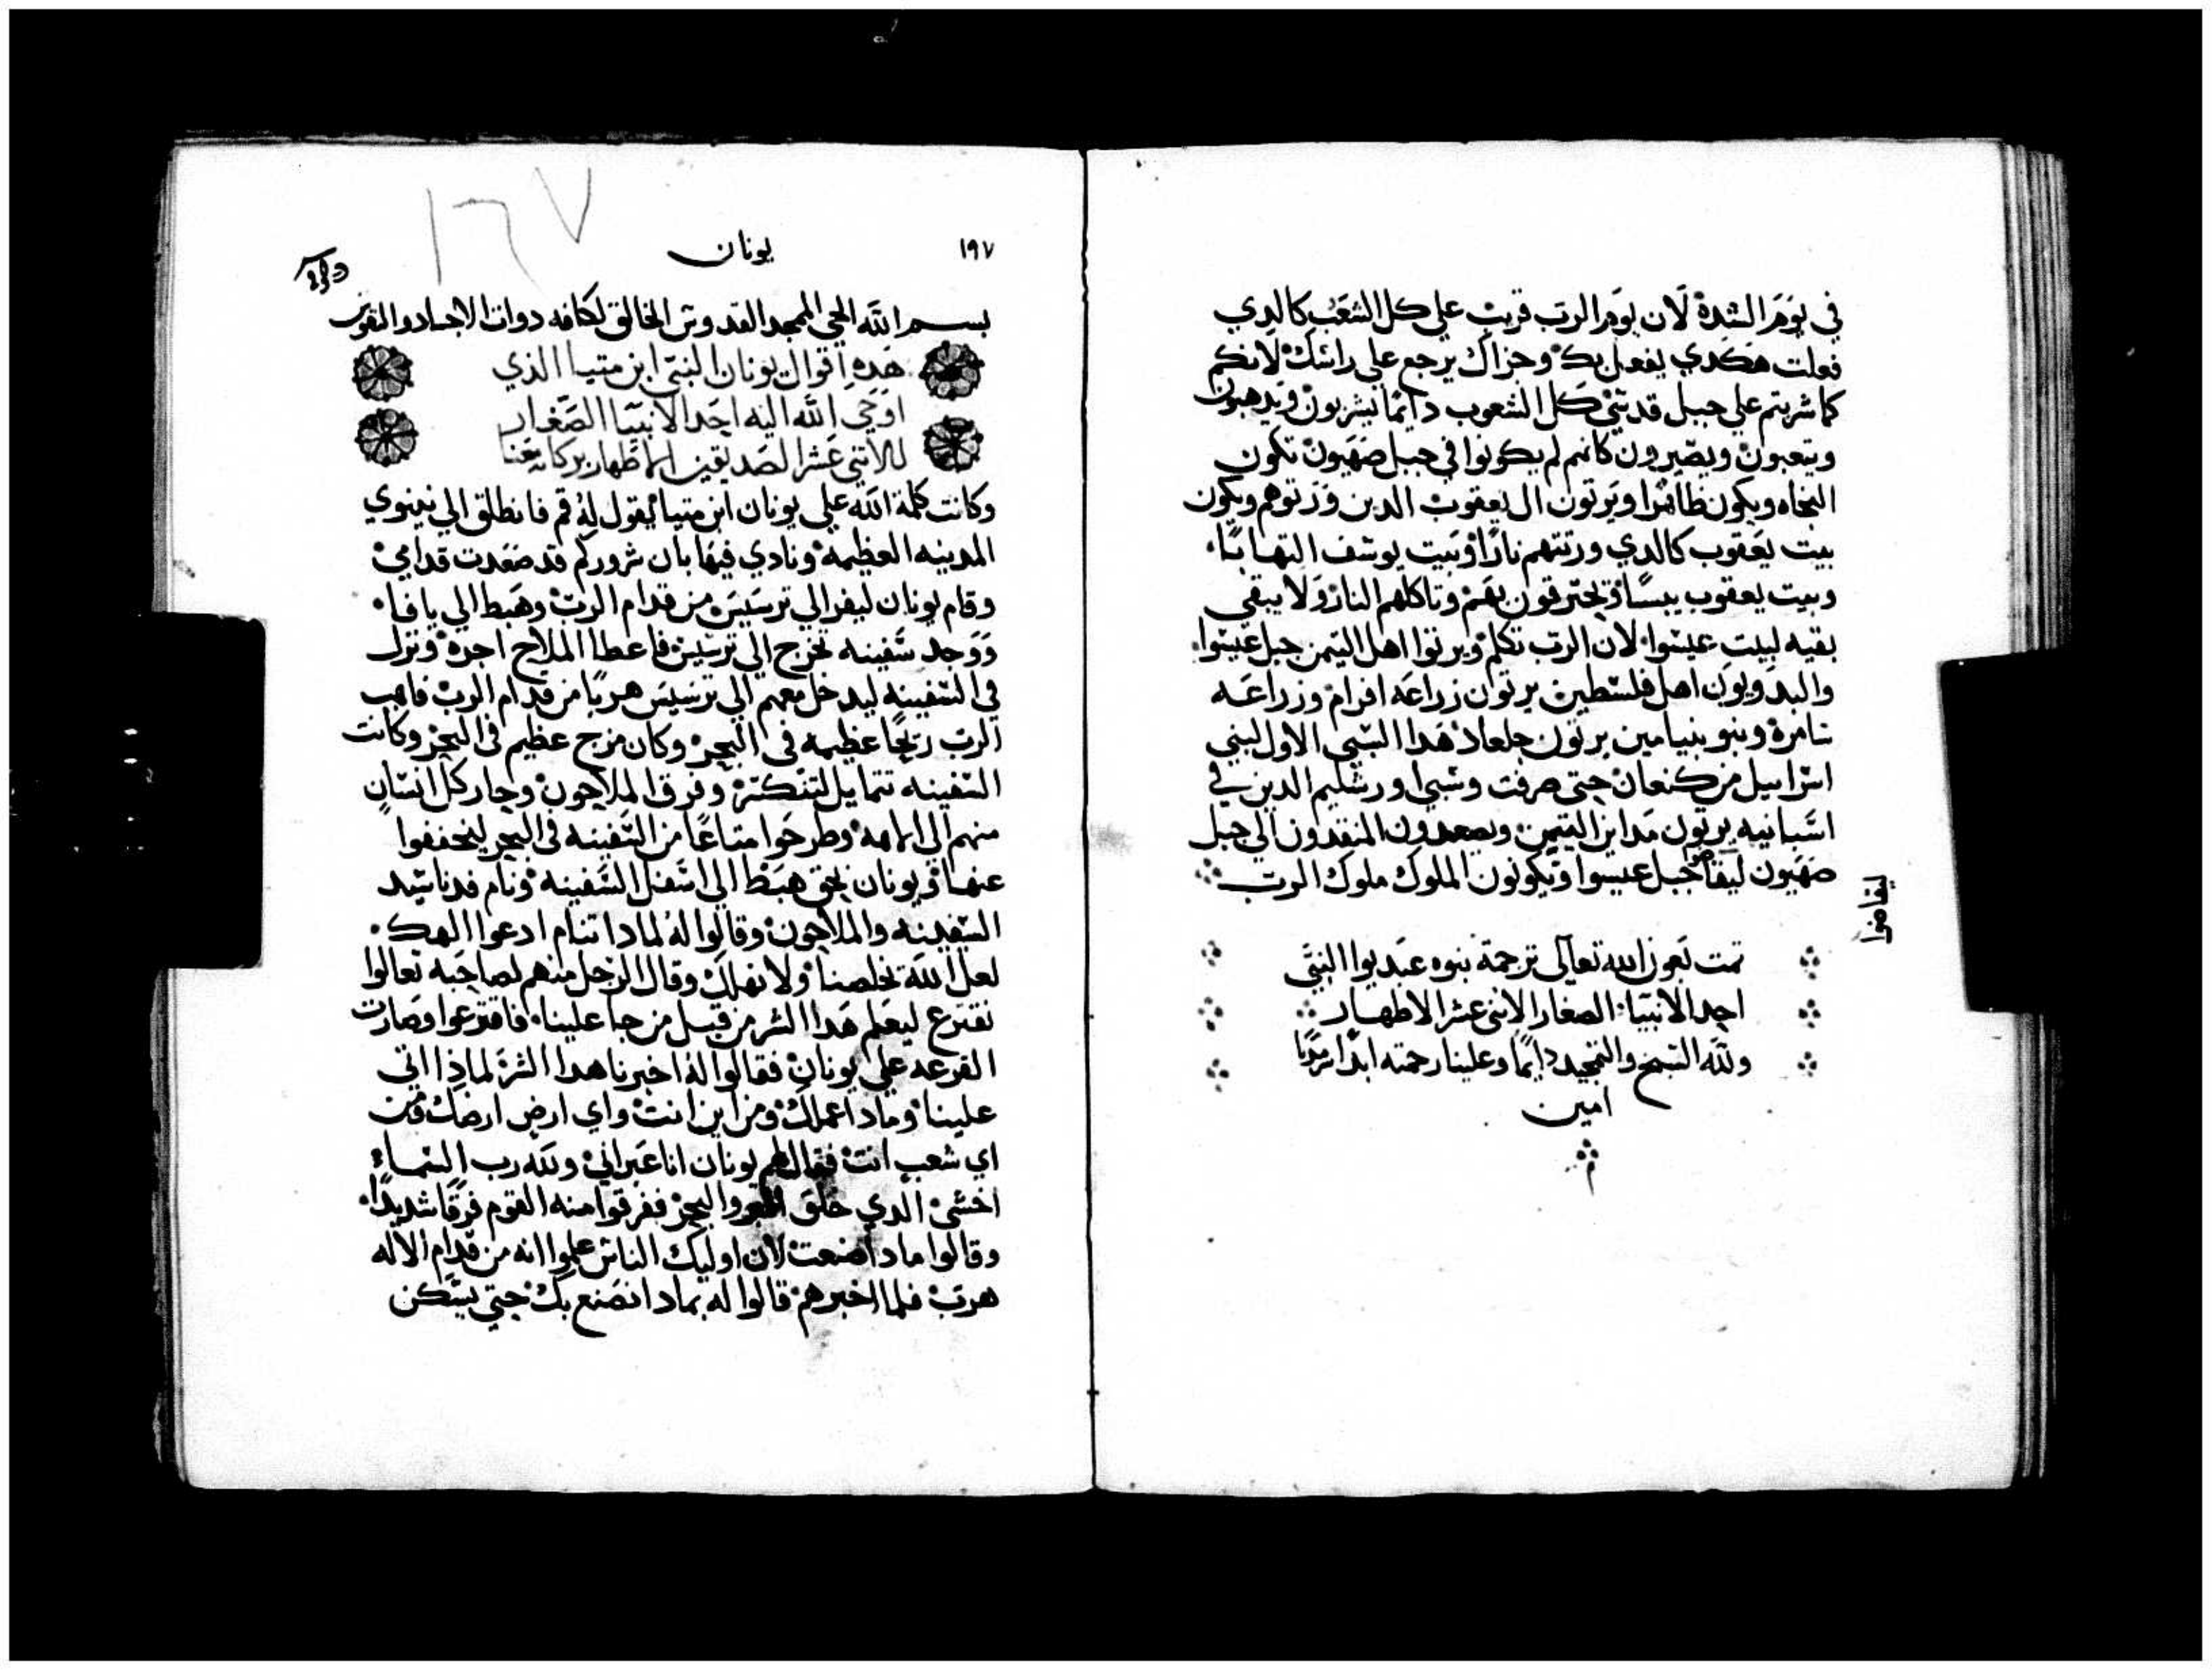 في يوم الشدة لان يوم الرب قريب على كل الشعب كالدي
فعلت هكدي يفعل بك وجزاك يرجع على راسك لانكم
كما شربتم على جبل قدسي كل الشعوب دايما يشربون ويدهبون
ويتعبون ويصيرون كانهم لم يكونوا في جبل صهيون تكون
النجاه ويكون ظاهرا ويرتون ال يعقوب الدين ورتوهم ويكون
بيت يعقوب كالدي ورتتهم نارا وبيت يوسف التهابا
وبيت يعقوب يبسا وتحترقون بهم وتاكلهم النار ولا يبقى
بقيه لبيت عيسوا لان الرب تكلم ويرتوا اهل التيمن جبل عيسوا
اهل فلسطين يرتون زراعه افرام وزراعه
سامرة وبنو بنيامين يرتون جلعاد هدا السبي الاول لبني
اسراييل من كنعان حتى صرفت وسبي اورشليم الدين في
اسبانيه يرتون مداين التيمن ويصعدون المنقدون الي جبل
صهيون جبل عيسوا ويكونون الملوك ملوك الرب
ليقاضوا
تمت بعون الله تعالى ترجمة نبوه عبديوا النبي
احد الانبيا الصغار الاثنى عشر الاطهار
ولله التسبيح والتمجيد دايما وعلينا رحمته ابدا سرمديا
امين
١٦٧
١٩٧ يونان
بسم الله الحي الممجد القدوس الخالق لكافه دوات الاجساد والنفوس
هده اقوال يونان النبي ابن متيا الذي
اوحي الله اليه احد الانبيا الصغار
للاثني عشر الصديقين الاطهار بركاتهم معنا
وكانت كلمة الله على يونان ابن متيا يقول له قم فانطلق الي نينوي
المدينه العظيمه ونادي فيها بان شروركم قد صعدت قدامي
وقام يونان ليفر الي ترسيس من قدام الرب وهبط الي يافا
ووجد سفينه تخرج الي ترسيس فاعطا الملاح اجره ونزل
في السفينه ليدخل معهم الي ترسيس هربا من قدام الرب فاهب
الرب ريحا عظيمه في البحر وكان مزج عظيم في البحر وكانت
السفينه تتمايل لتنكسر وفرق الملاحون وجار كل انسان
منهم الي الاهه وطرحوا متاعا من السفينه في البحر ليخففوا
عنها ويونان هبط الى اسفل السفينه ونام
السفينه والملاحون وقالوا له لمادا تنام ادعوا الهك
لعل الله يخلصنا ولا نهلك وقال الرجل منهم لصاحبه تعالوا
نقترع ليعلم هدا الشر من قبل من جا علينا فاقترعوا وصارت
القرعه على يونان فقالوا له اخبرنا هدا الشر لماذا اتى
علينا ومادا عملك ومن اين انت واي ارض ارضك ومن
اي شعب انت فقال لهم يونان انا عبراني ولله رب السماء
اخشى الدي خلق البر والبحر ففرقوا منه القوم فرقا شديدا
وقالوا مادا صنعت لان اوليك الناس علموا انه من قدام الاله
هرب فلما اخبرهم قالوا له بمادا نصنع بك حتى يسكن